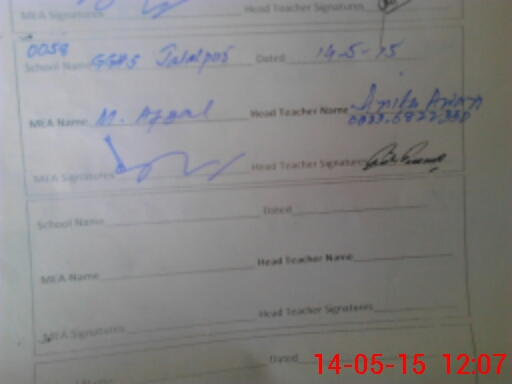 MEA Signatures Head Teacher Signatures
0058
School Name GGHS Jalalpur Dated 14-5-15
MEA Name M. Afzal Head Teacher Name
MEA Signatures Head Teacher Signatures
School Name Dated
MEA Name Head Teacher Name
MEA Signatures Head Teacher Signatures
Dated
14-05-15 12:07